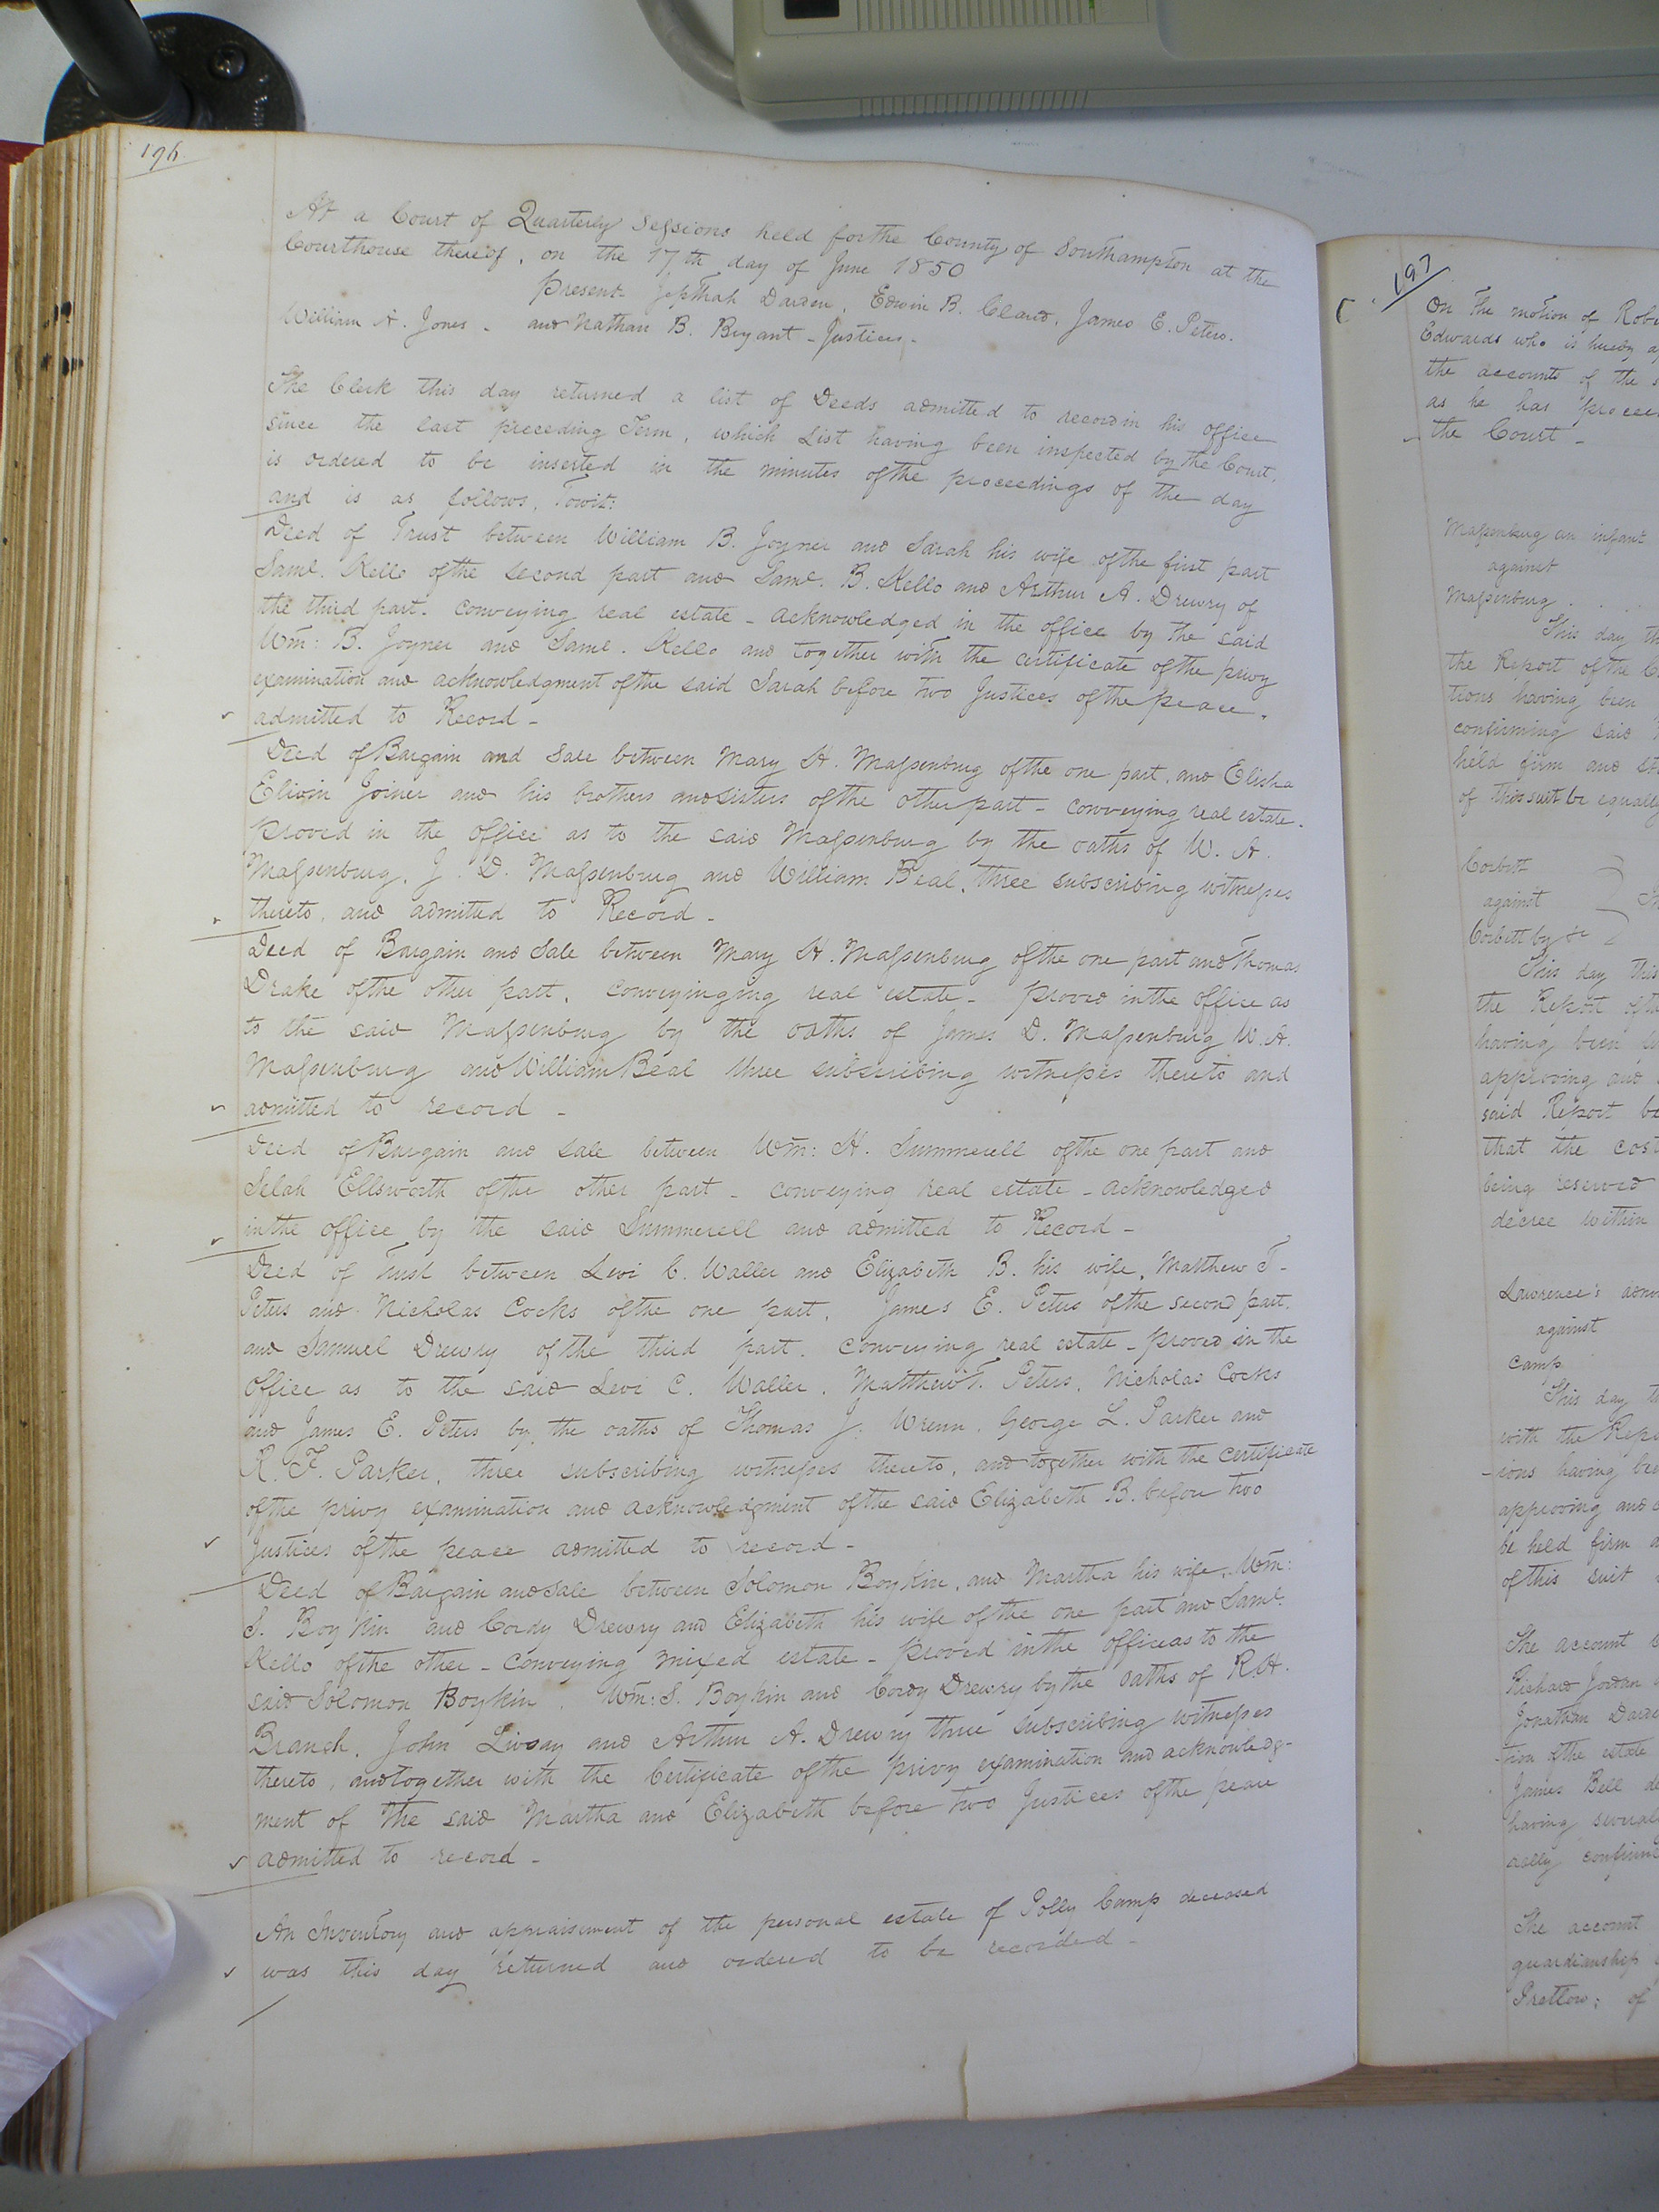 196.
At a Court of Quarterly Sessions held for the County of Southampton at the
Courthouse thereof, on the 17th day of June 1850
Present Jepthah Darden, Edwin B. Claud, James E. Peters.
William A. Jones - and Nathan B. Bryant - Justices -
The Clerk this day returned a list of Deeds admitted to record in his office
since the last preceding Term, which List having been inspected by the Court,
is ordered to be inserted in the minutes of the proceedings of the day
and is as follows, Towit:
Deed of Trust between William B. Joyner and Sarah his wife of the first part
Saml. Kello of the second part and Saml. B. Kello and Arthur A. Drewry of
the third part. conveying real estate - acknowledged in the office by the said
Wm: B. Joyner and Saml. Kello and together with the certificate of the privy
examination and acknowledgment of the said Sarah before two Justices of the peace.
admitted to Record -
Deed of Bargain and Sale between Mary H. Massenburg of the one part, and Elisha
Elivin Joiner and his brothers and sisters of the other part - conveying real estate.
proved in the office as to the said Massenburg by the oaths of W. A.
Massenburg, J. D. Massenburg and William Beal, three subscribing witnesses
thereto, and admitted to Record -
Deed of Bargain and Sale between Mary H. Massenburg of the one part and Thomas
Drake of the other part, conveyinging real estate - proved in the office as
to the said Massenburg by the oaths of James D. Massenburg W. A.
Massenburg and William Beal three subscribing witnesses thereto and
admitted to record -
Deed of Bargain and sale between Wm: H. Summerell of the one part and
Selah Ellsworth of the other part - conveying real estate - acknowledged
in the office by the said Summerell and admitted to Record -
Deed of Trust between Levi C. Waller and Elizabeth B. his wife, Matthew T.
Peters and Nicholas Cocks of the one part, James E. Peters of the second part.
and Samuel Drewry of the third part. conveying real estate - proved in the
Office as to the said Levi C. Waller, Matthew T. Peters, Nicholas Cocks
and James E. Peters by the oaths of Thomas J. Wrenn, George L. Parker and
R. F. Parker, three subscribing witnesses thereto, and together with the certificate
of the privy examination and acknowledgment of the said Elizabeth B. before two
Justices of the peace admitted to record -
Deed of Bargain and sale between Solomon Boykin, and Martha his wife, Wm:
S. Boykin and Cordy Drewry and Elizabeth his wife of the one part and Saml.
Kello of the other - conveying mixed estate - proved in the office as to the
said Solomon Boykin, Wm: S. Boykin and Cordy Drewry by the oaths of R. H.
Branch, John Livsay and Arthur A. Drewry three subscribing witnesses
thereto, and together with the Certificate of the privy examination and acknowledg-
ment of the said Martha and Elizabeth before two Justices of the peace
admitted to record -
An Inventory and appraisement of the personal estate of Polly Camp deceased
was this day returned and ordered to be recorded -
197
On the motion of
Edwards who is hereby
the accounts of the
as he has
the Court -
Massenburg an infant
against
Massenburg
This day
the Report of the
tions having been
confirming said
held firm and
of this suit be equally
Corbitt
against
Corbitt by
This day this
the Report of
having been
approving and
said Report be
that the
being reserved
decree within
Lawrence's
against
Camp
This day
with the
ions having
approving and
be held firm
of this suit
The account
Richard Jordan
Jonathan
tion of the estate
James Bell
having
ally
The account
guardianship
Pretlow; of